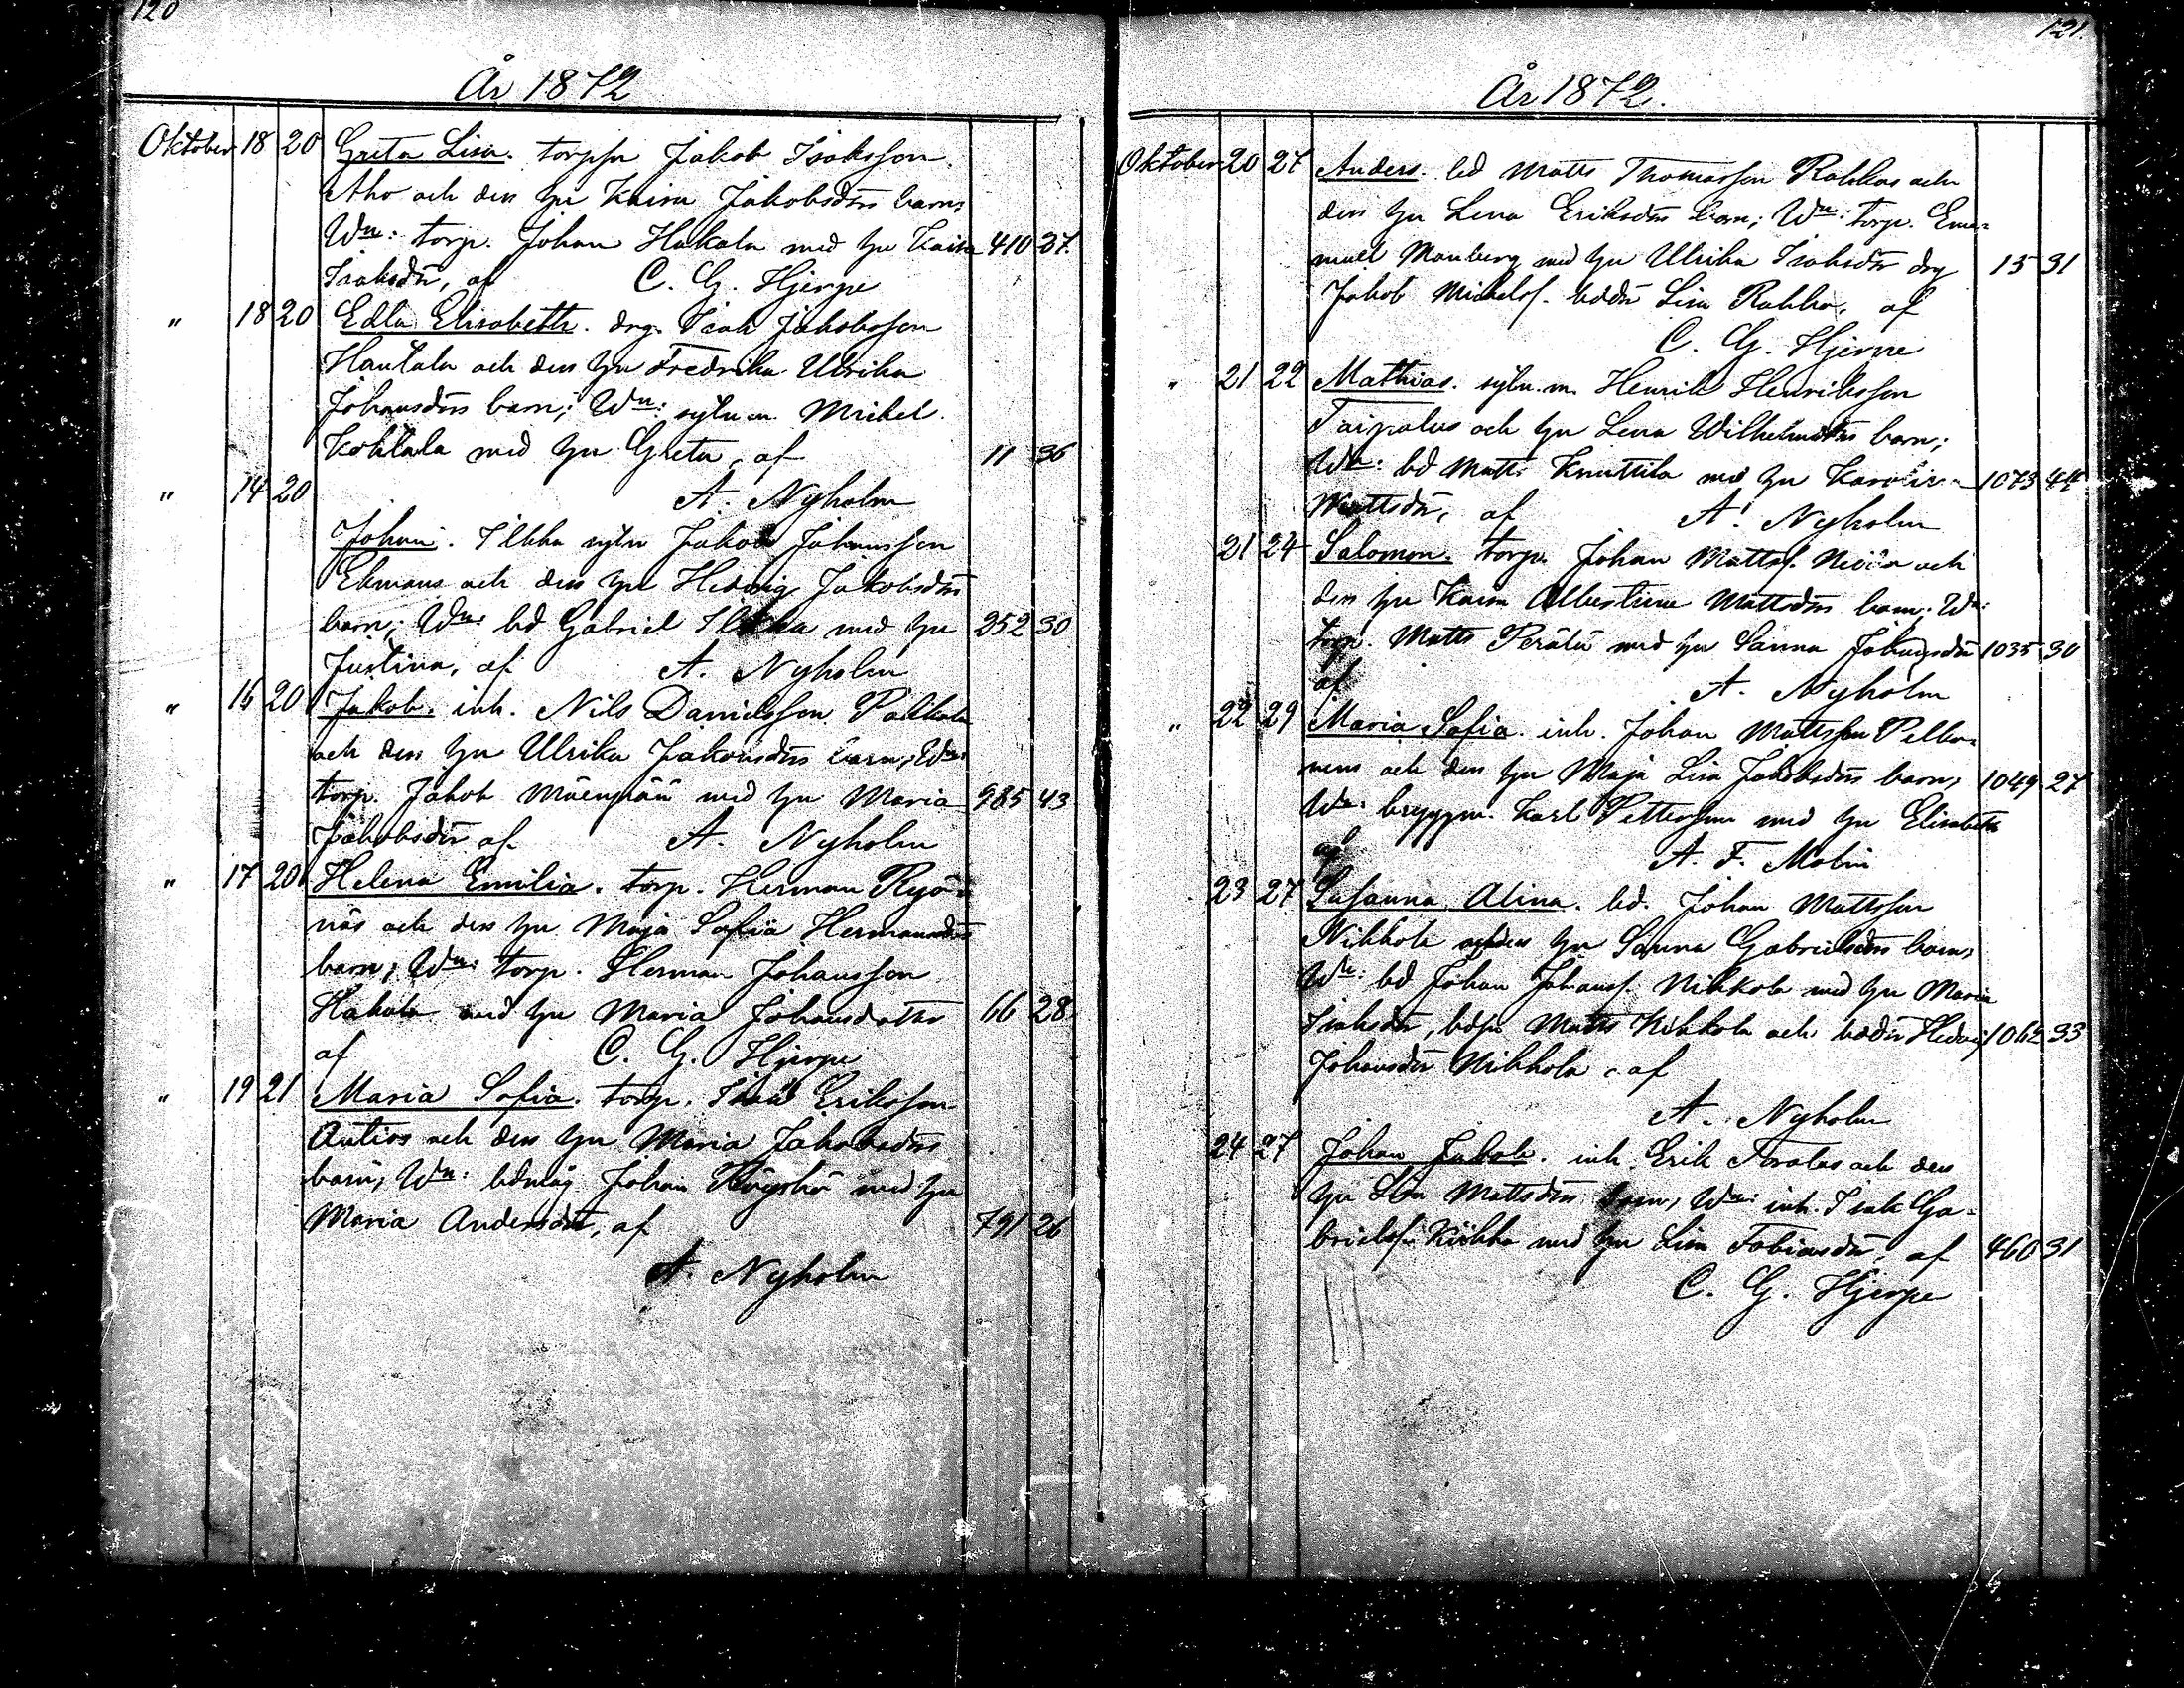 120
År 1872
Oktober 18 20 Greta Lisa. torpsn Jakob Isaksson
Aho och dess hu Kaisa Jakobsdrs barn;
Wn: torp. Johan Hakala med hu Kaisa 410 37.
Isaksdr, af C. G. Hjerpe
" 18 20 Edla Elisabeth. drg. Isak Jakobsson
Hautala och dess hu Fredrika Ulrika
Johansdrs barn; Wn: sytn.m. Mickel
Kohtala med hu Greta, af 11 36
" 14 20 A. Nyholm
Johan. Ilkka sytn Jakob Johansson
Ekmans och dess hu Hedvig Jakobsdrs
barn; Wn: bd Gabriel Ilkka med hu 252 30
Justina, af A. Nyholm
" 16 20 Jakob. inh. Nils Danielsson Pakkala
och dess hu Ulrika Jakobsdrs barn; Wn:
torp. Jakob Mäenpää med hu Maria 985 43
Jakobsdr af A. Nyholm
" 17 20 Helena Emilia. torp. Herman
och dess hu Maja Sofia Hermansdrs
barn; Wn: torp. Herman Johansson
Hakala med hu Maria Johansdotter 66 28
af C. G. Hjerpe
" 19 21 Maria Sofia. torp. Isak Eriksson
Antios och dess hu Maria Jakobsdrs
barn; Wn: bdmåg Johan med hu
Maria Andersdr, af 791 26
A. Nyholm
121.
År 1872.
Oktober 20 27 Anders. bd Matts Thomasson Rahkos och
dess hu Lena Eriksdrs barn; Wn: torp. Ema-
nuel Manberg med hu Ulrika Isaksdr drg 15 31
Jakob Mickelss. bddr Lisa Rahko, af
C. G. Hjerpe
" 21 22 Mathias. sytn.m. Henrik Henriksson
Taipalus och hu Lena Wilhelmsdrs barn;
Wn: bd Matts Knuttila med hu Karolina 1073 44
Mattsdr, af A. Nyholm
21 24 Salomon. torp. Johan Mattss. och
dess hu Kaisa Albertina Mattsdrs barn; Wn:
torp. Matts Perälä med hu Sanna Johansdr 1035 30
af A. Nyholm
" 22 29 Maria Sofia. inh. Johan Mattsson Pelko-
nens och dess hu Maja Lisa Jakobsdrs barn; 1049 27
Wn: Karl Pettersson med hu Elisabeth
af A. F. Molin
23 27 Susanna Alina. bd. Johan Mattsson
Nikkola och dess hu Sanna Gabrielsdrs barn;
Wn: bd Johan Johanss. Nikkola med hu Maria
Isaksdr, bdsn Matts Nikkola och bddr Hedvig 1062 33
Johansdr Nikkola, af
A. Nyholm
24 27 Johan Jakob. inh. Erik och dess
hu Lisa Mattsdrs barn; Wn: inh. Isak Ga-
brielss. med hu Lisa Tobiasdr, af 460 31
C. G. Hjerpe